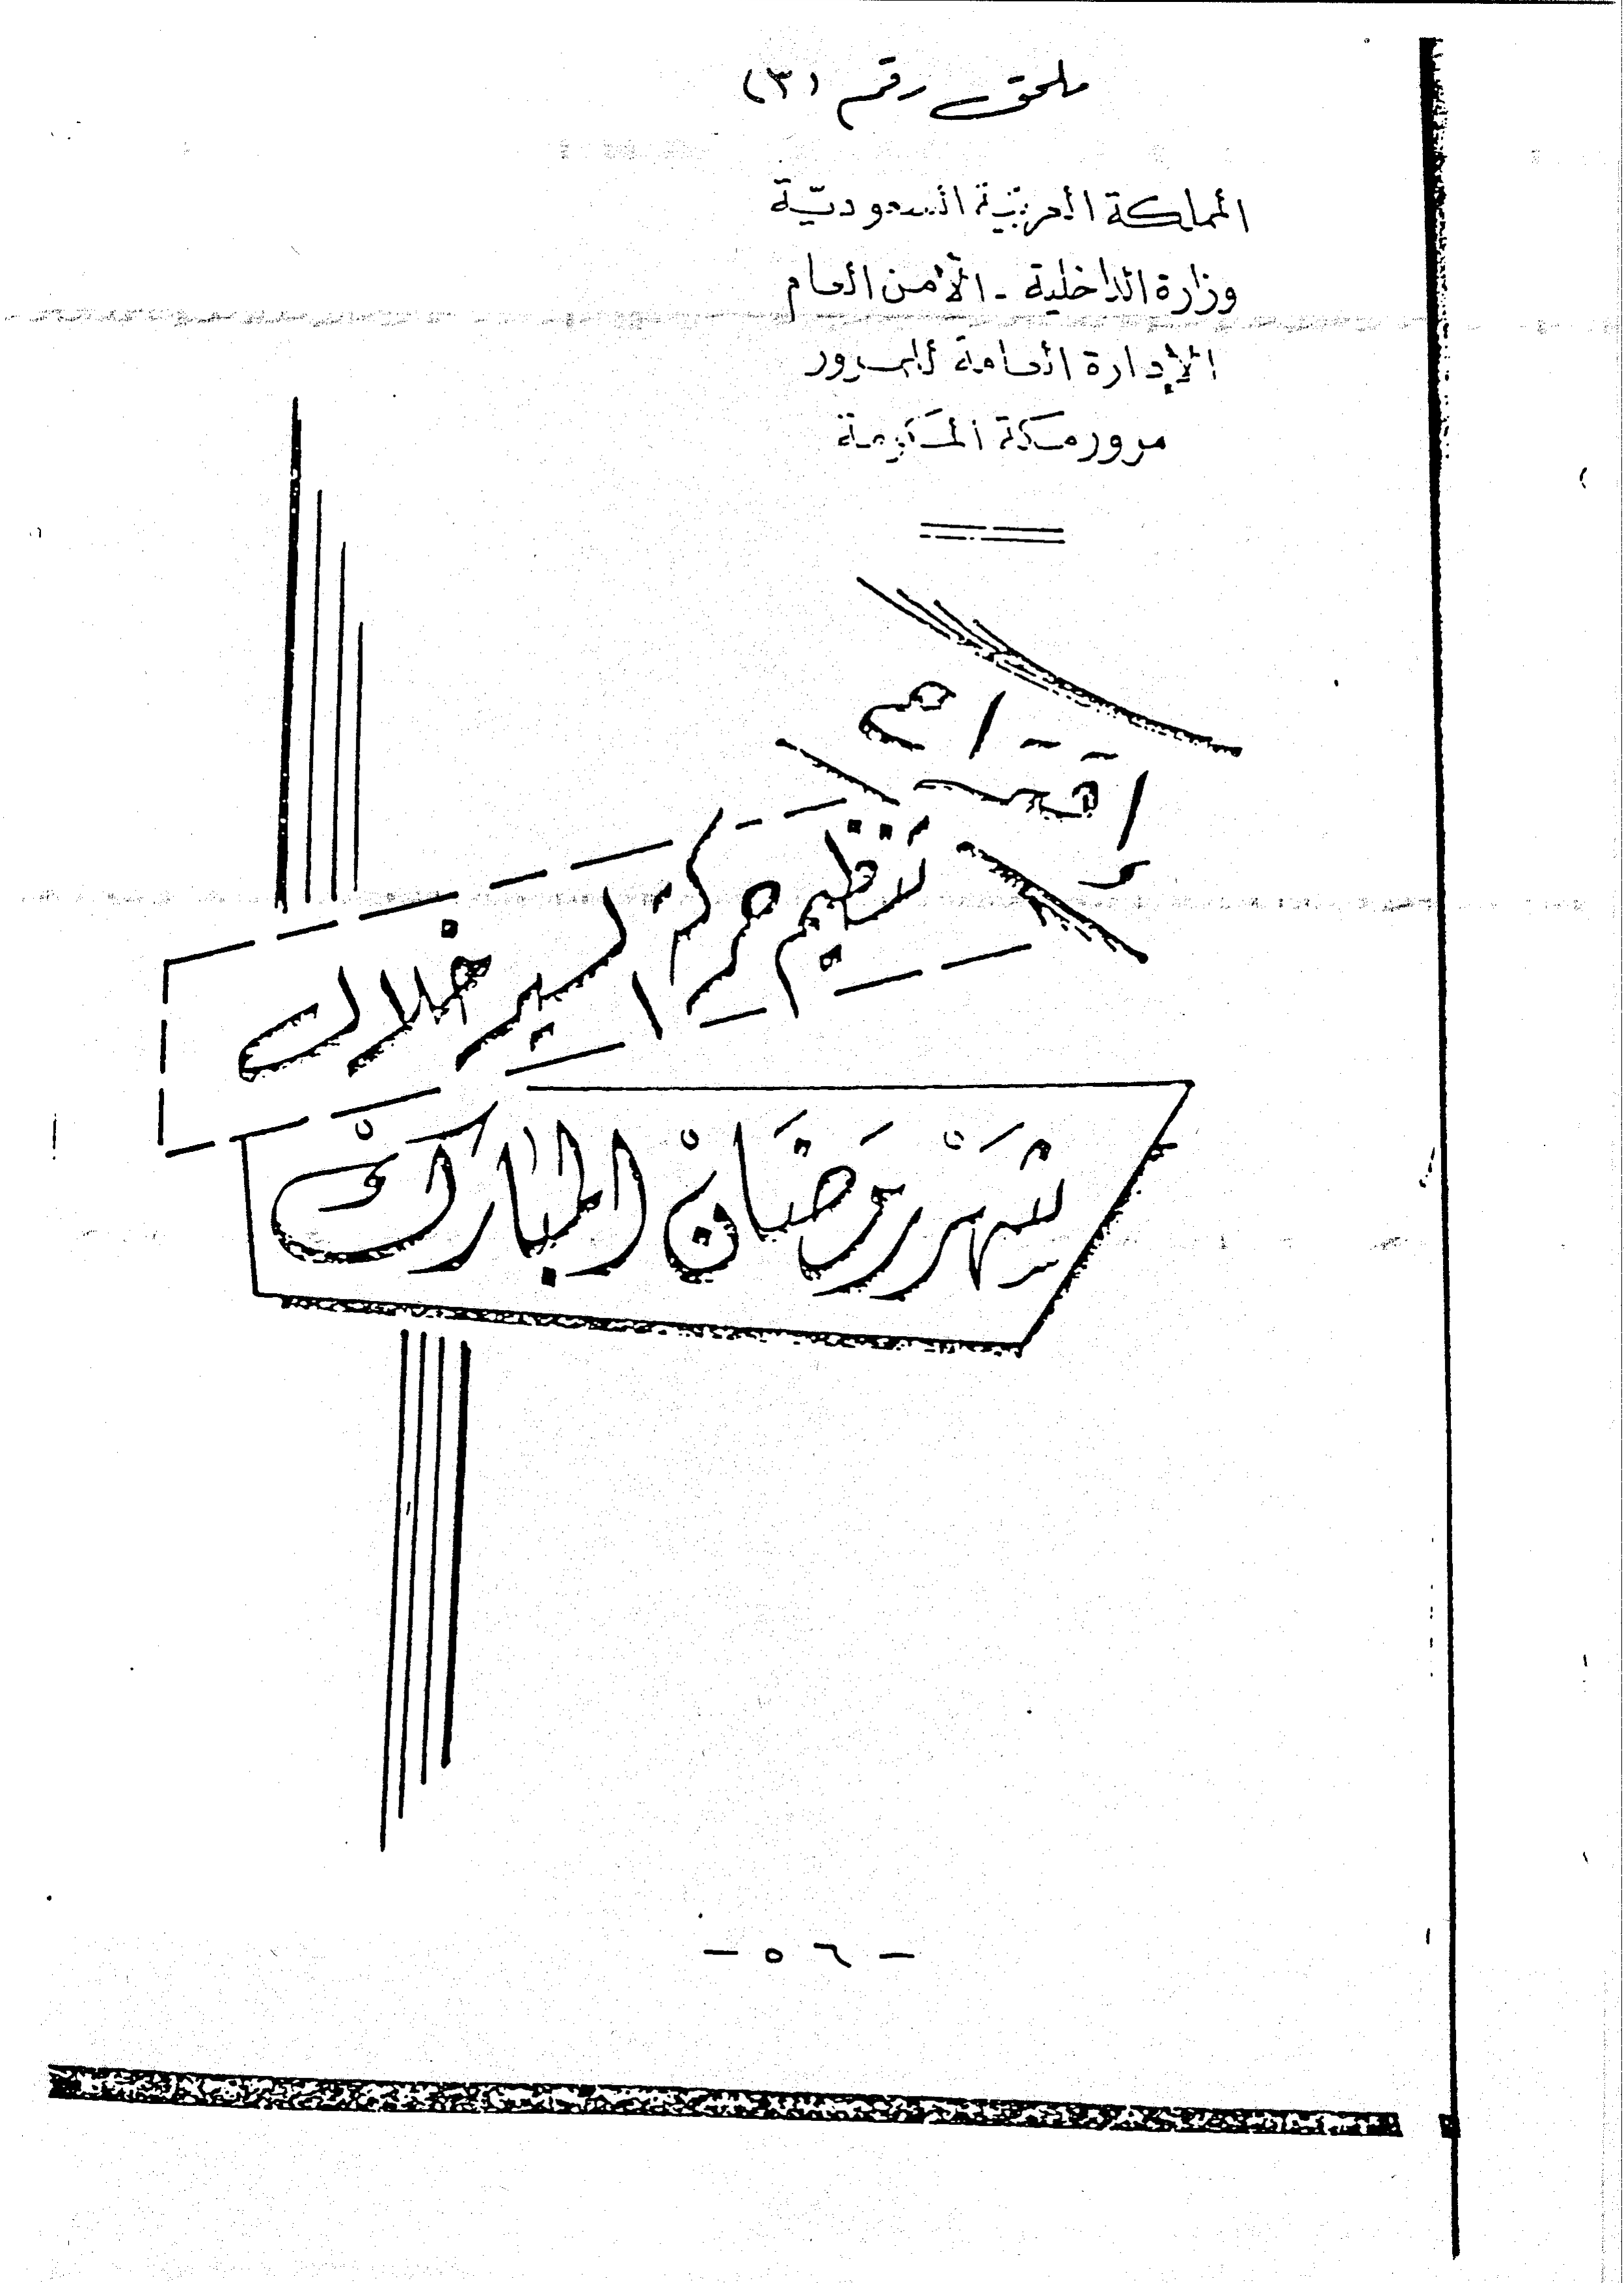 ملحق رقم (٣)
المملكة العربية السعودية
وزارة الداخلية - الأمن العام
الإدارة العامة للمرور
مرور مكة المكرمة
تنظيم حركة السير خلال
شَهْر رَمَضَانْ المبَارَكْ
- ٥٦ -